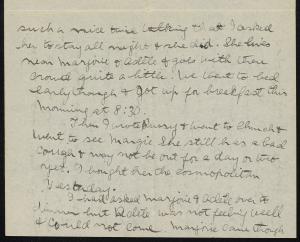 such a nice time talking that I asked
her to stay all night & she did. She lives
near Marjorie & Adele & goes with them
around quite a little. We went to bed
early though & got up for breakfast this
morning at 8:30.
Then I wrote & went to Church &
went to see Margie. She still has a bad
cough & may not be out for a day or two
yet. I bought her the Cosmopolitan
Yesterday.
I had asked Marjorie & Adele over to
dinner but Adele was not feeling well
& could not come. Marjorie came though